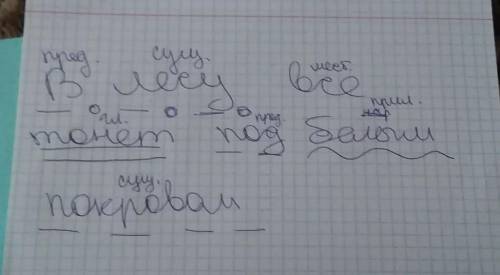 пред. сущ. мест.
В лесу все
гл. пред. прил.
тонет под белым
сущ.
покровам